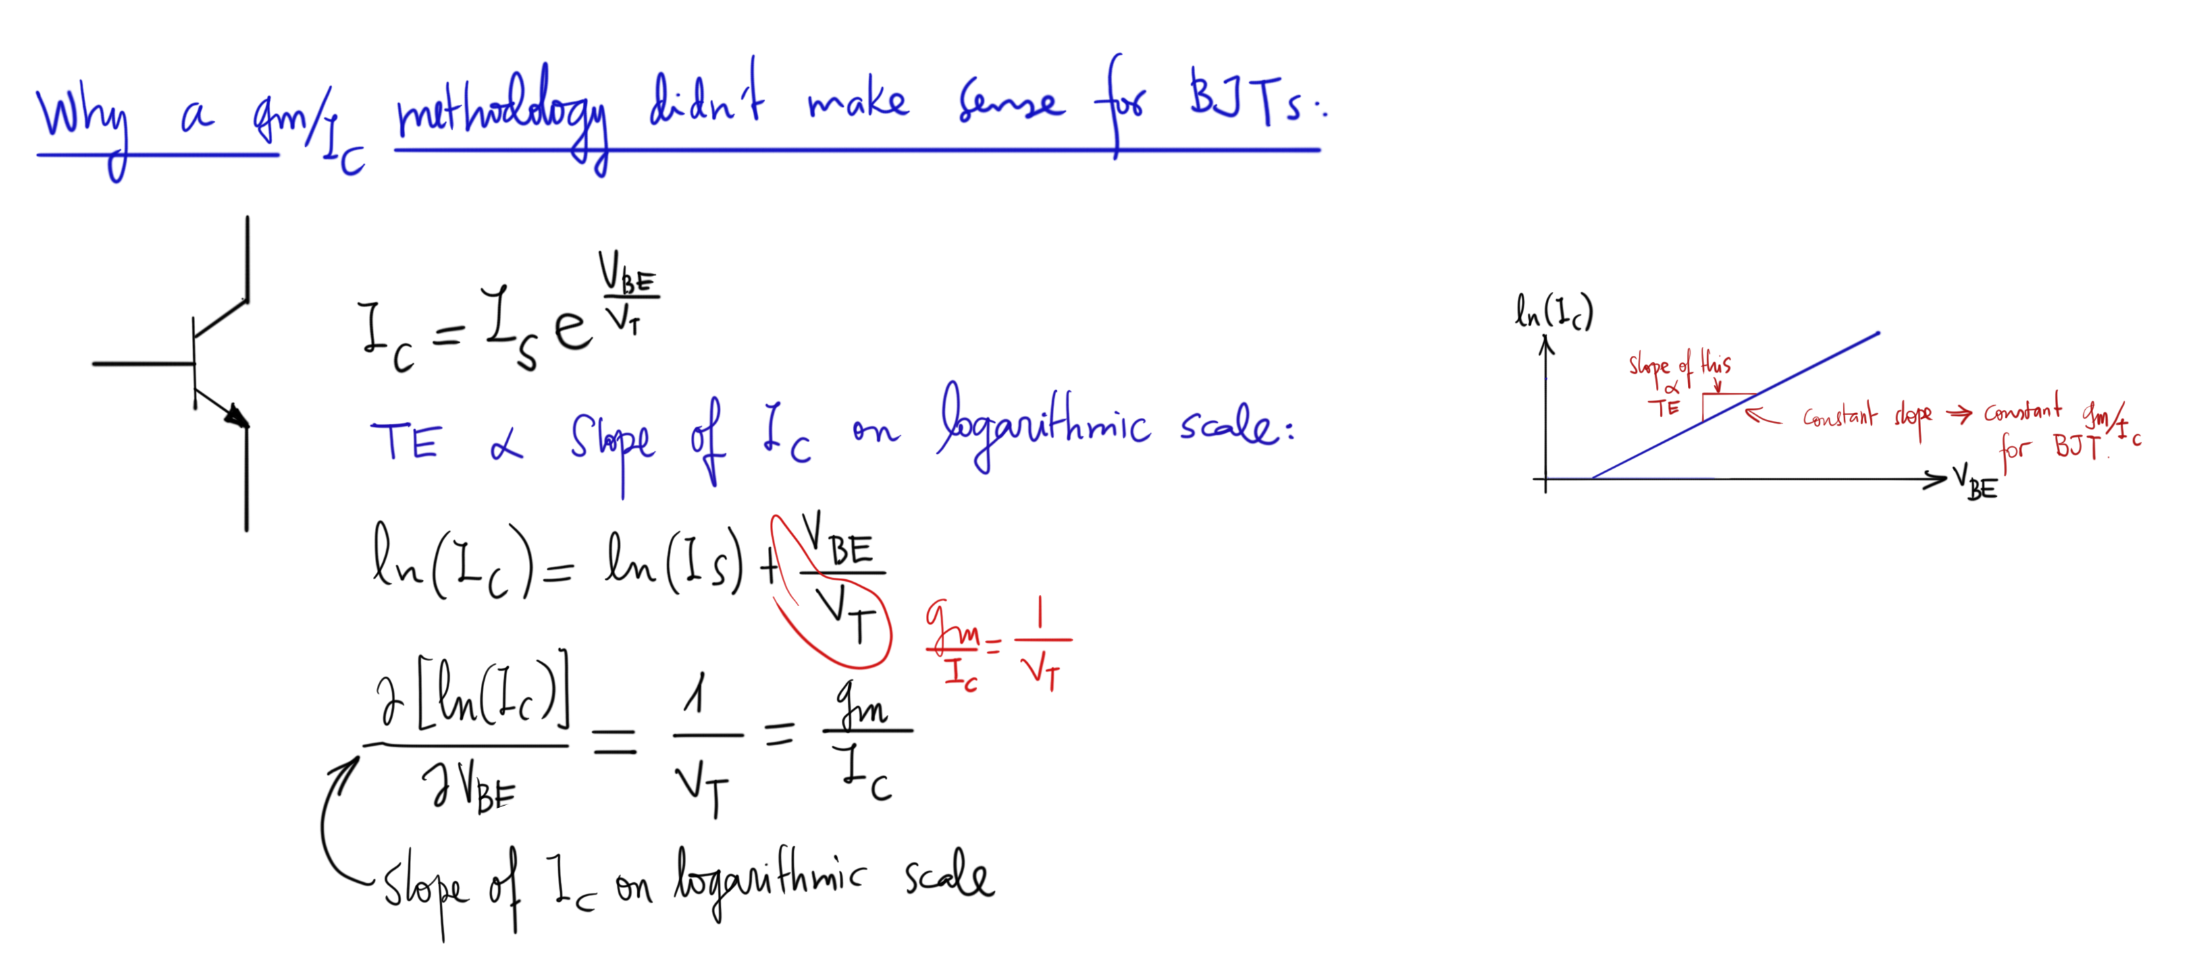 Why a gm/I_C methodology didn't make sense for BJTs:
I_C = I_S e^(V_BE/V_T)
TE ∝ Slope of I_C on logarithmic scale:
ln(I_C) = ln(Is) + V_BE/V_T
gm/I_C = 1/V_T
∂[ln(I_C)]/∂V_BE = 1/V_T = gm/I_C
slope of I_C on logarithmic scale
ln(I_C)
Slope of this
∝
TE
Constant slope → constant gm/I_C
for BJT.
V_BE